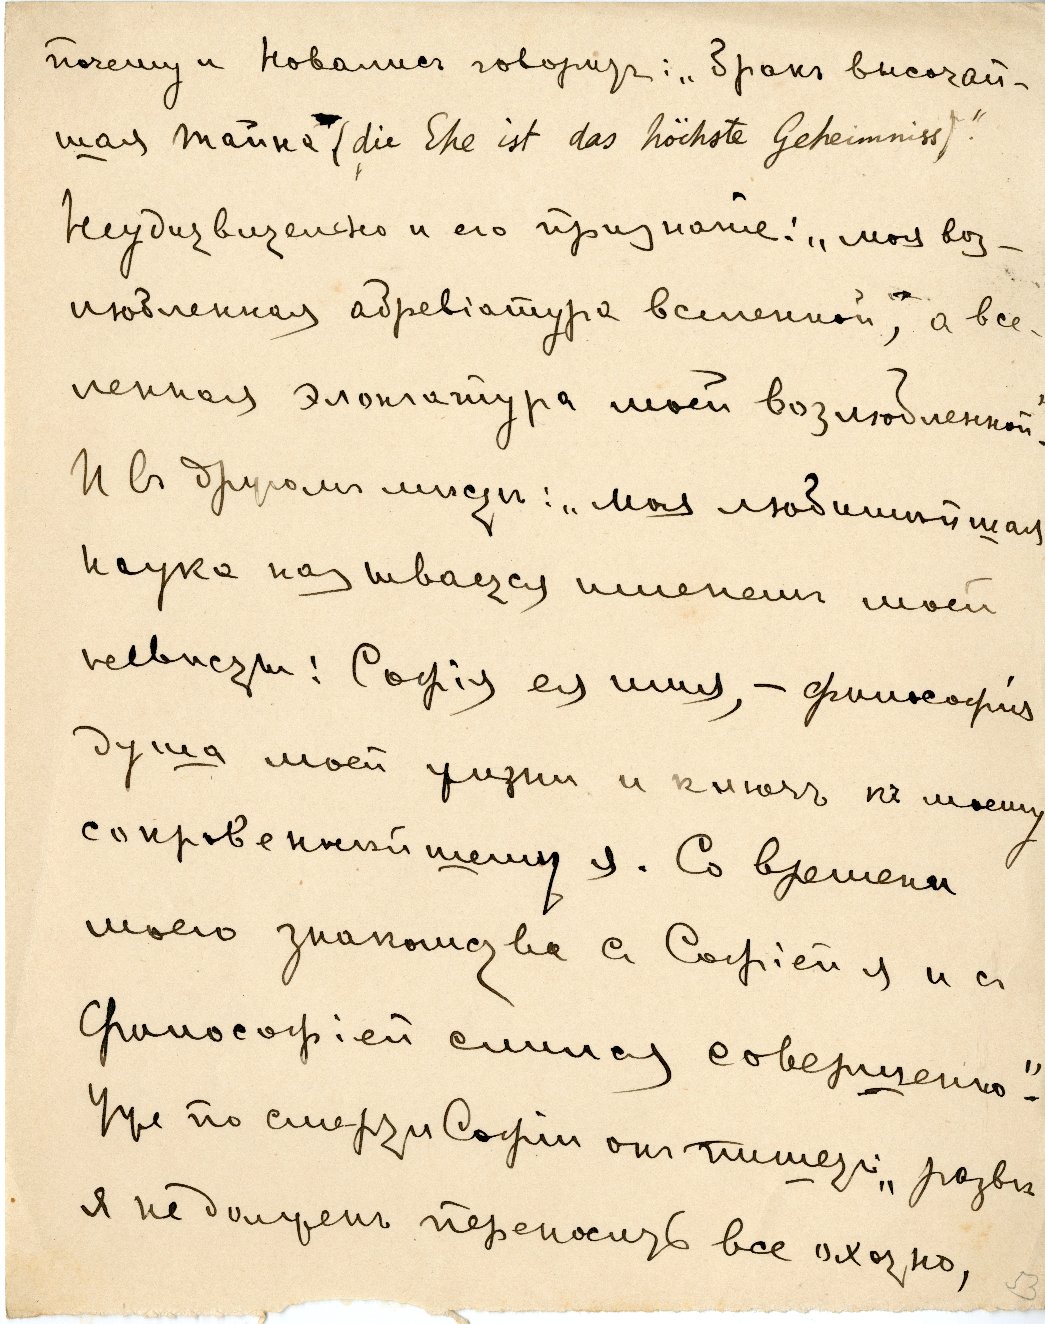 почему и Новалисъ говоритъ: „Бракъ высочай-
шая тайна (die Ehe ist das höchste Geheimniss)“.
Неудивительно и его признате: „моя воз-
любленная абревіатура вселенной, а все-
ленная элонгатура моей возлюбленной“.
И въ другомъ мѣстѣ: „моя любимѣйшая
наука называется именемъ моей
невѣсты: Софія ея имя, – философія
душа моей жизни и ключъ къ моему
сокровеннѣйшему я. Со времени
моего знакомства съ Софіей я и съ
философіей слился совершенно“.
Уже по смерти Софіи онъ пишетъ: „развѣ
я не долженъ переносить все охотно,
53